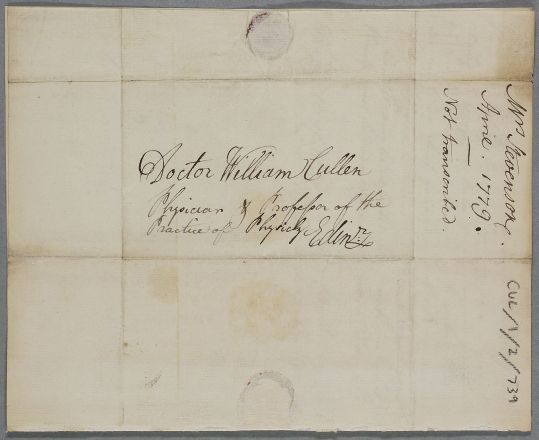 Doctor William Cullen
Physician & Professor of the
Practice of Physick Edinr.
Mrs Stevenson.
April. 1779.
Not transcribed.
CUL/1/2/739